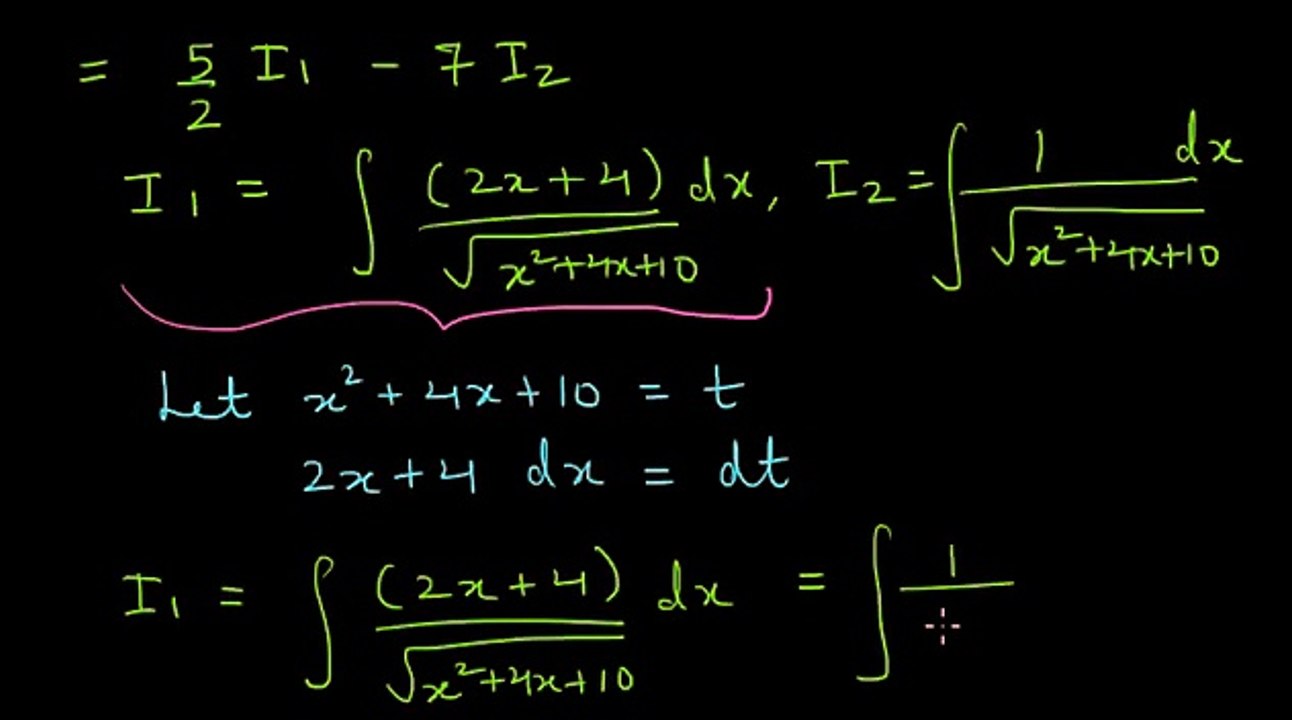 = 5/2 I₁ - 7 I₂
I₁ = ∫ (2x+4)/√(x²+4x+10) dx, I₂ = ∫ 1/√(x²+4x+10) dx
Let x²+4x+10 = t
2x+4 dx = dt
I₁ = ∫ (2x+4)/√(x²+4x+10) dx = ∫ 1/